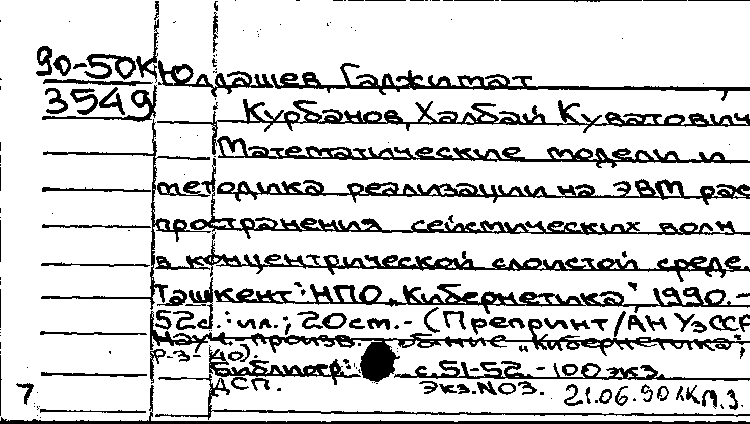 90-50К Юлдашев, Гаджимат
3549 Курбанов, Халбай Куватович
Математические модели и
методика реализации на ЭВМ рас
пространения сейсмических волн
в концентрической слоистой среде.
Ташкент: НПО „Кибернетика“ 1990.-
52с.: ил.; 20см.- (Препринт/АН УзССР
Науч.-произв. „Кибернетика“;
Р-3- 40).
Библиогр.: с.51-52. - 100 экз.
ДСП. Экз.№03. 21.06.90
7